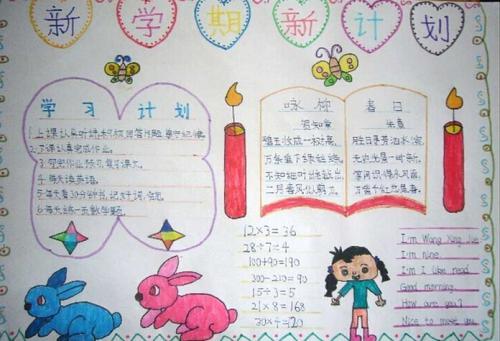 新学期新计划
学习计划
1.上课认真听讲,积极回答问题,遵守纪律。
2.下课认真完成作业。
3.写完作业预习,复习课文。
4.每天读英语。
5.每天看30分钟书,记好词、好句。
6.每天练一页数学题。
咏柳
贺知章
碧玉妆成一树高,
万条垂下绿丝绦。
不知细叶谁裁出,
二月春风似剪刀。
春日
朱熹
胜日寻芳泗水滨,
无边光景一时新。
等闲识得东风面,
万紫千红总是春。
12×3=36
28÷7=4
100+90=190
300-210=90
15÷3=5
21×8=168
30×4=120
I'm Wang
I'm nine.
I'm I like read
Good morning.
How are you?
Nice to meet you